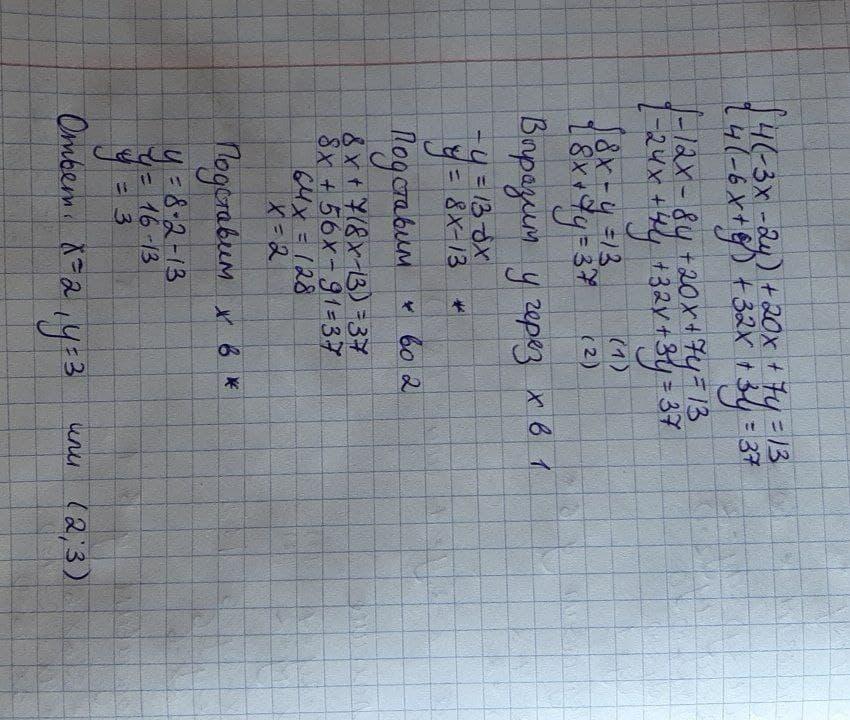 {4(-3x-2y)+20x+7y=13
{4(-6x+y)+32x+3y=37
{-12x-8y+20x+7y=13
{-24x+4y+32x+3y=37
{8x-y=13 (1)
{8x+7y=37 (2)
Выразим y через x в 1
-y=13-8x
y=8x-13 *
Подставим * во 2
8x+7(8x-13)=37
8x+56x-91=37
64x=128
x=2
Подставим x в *
y=8·2-13
y=16-13
y=3
Ответ: x=2, y=3 или (2;3)